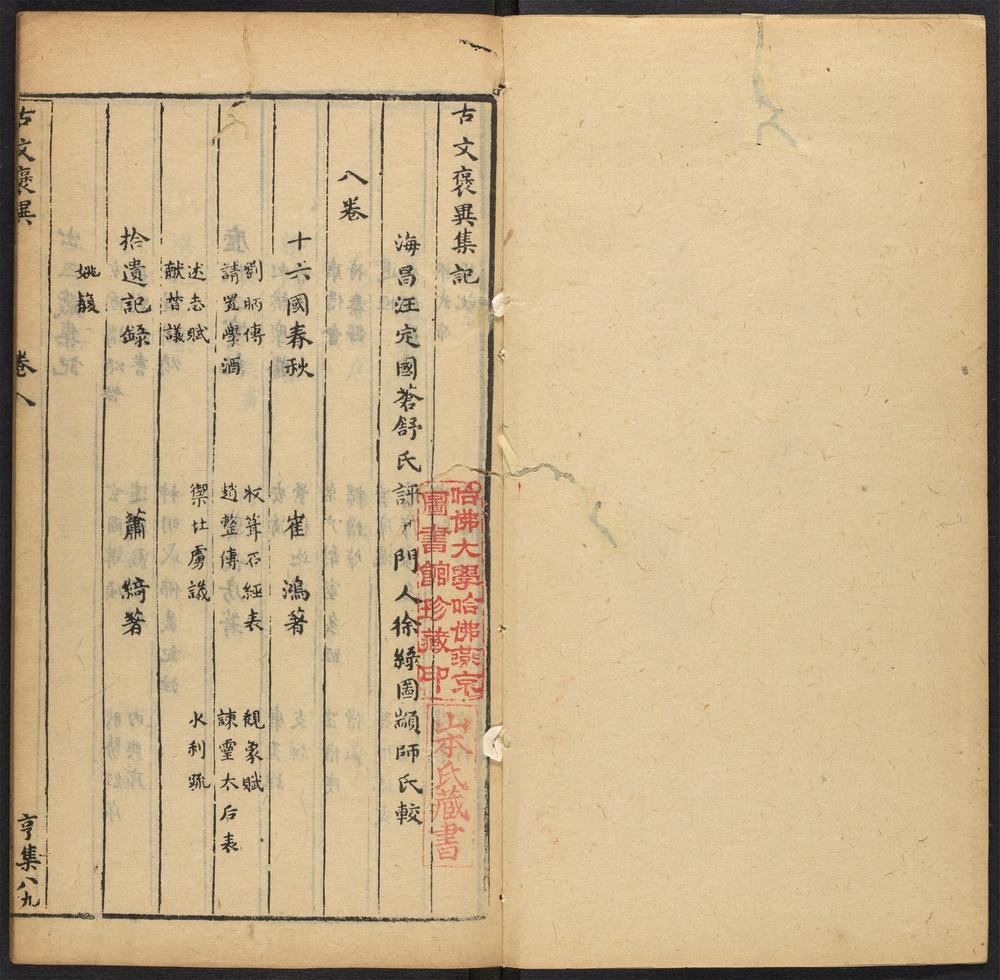 古文褒異集記
海昌汪定國蒼舒氏評 門人徐綠圖顓師氏較
八卷
十六國春秋 崔鴻著
劉昞傳 收葺石經表 觀象賦
請置學酒 趙整傳 諫靈太后表
述志賦 禦北虜議 水利疏
獻替議
拾遺記錄 蕭綺著
姚馥
古文褒異 卷八 亨集八九
哈佛大學哈佛燕京
圖書館珍藏印
山本氏藏書